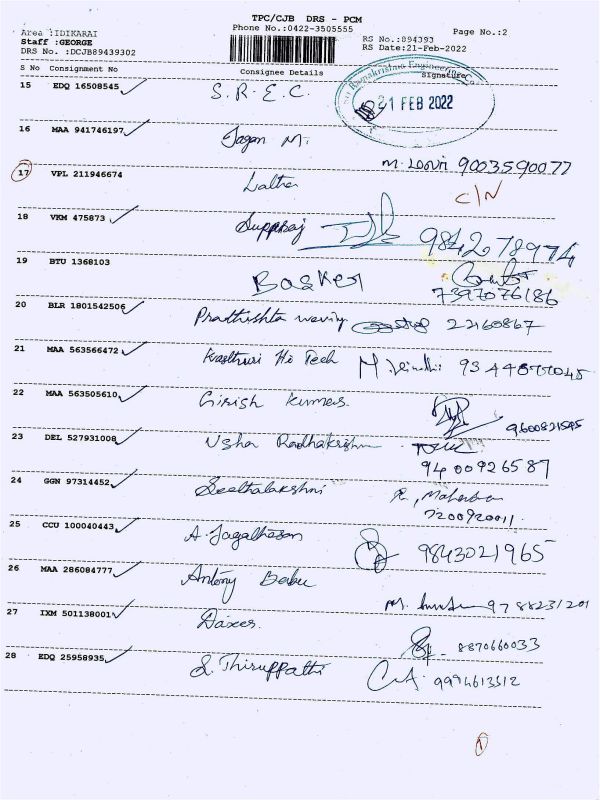 TPC/CJB DRS - PCM
Phone No.:0422-3505555
Area :IDIKARAI
Staff :GEORGE
DRS No. :DCJB89439302
RS No.:894393
RS Date:21-Feb-2022
Page No.:2
S No Consignment No Consignee Details Signature
Sri Ramakrishna Engineering Co
21 FEB 2022
15 EDQ 16508545 S.R.E.C.
16 MAA 941746197 Jagan M.
M. 9003590077
17 VPL 211946674 Latha
C/N
18 VKM 475873 Suppraj 984278974
19 BTU 1368103 Basker
7397076186
20 BLR 1801542506 Prathishta 22160867
21 MAA 563566472 Kasthuri Hi Tech M.
22 MAA 563505610 Girish Kumar.
9600821595
23 DEL 527931008 Usha Radhakrishnan
9400926587
24 GGN 97314452 Seethalakshmi R,
7200920011.
25 CCU 100040443 A. Jagathesan 9843021965
26 MAA 286084777 Antony Babu
M.
27 IXM 501138001
8870660033
28 EDQ 25958935 S. Thiruppathi
9994613512
1